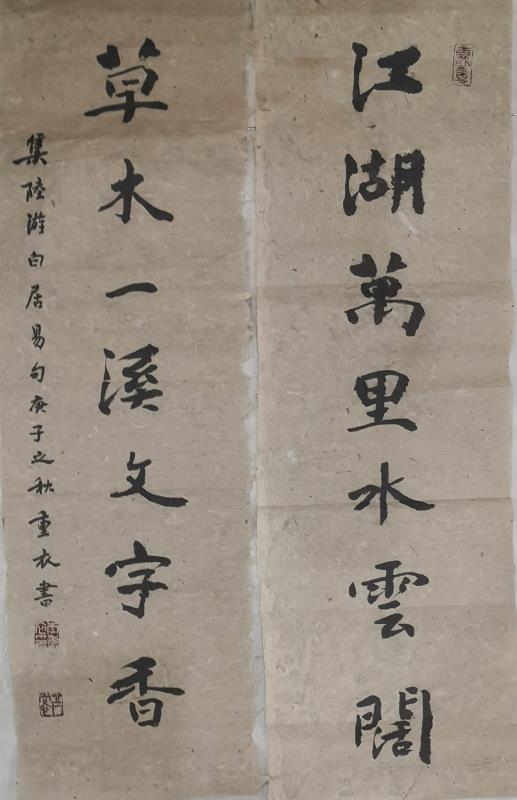 江湖萬里水雲闊
草木一溪文字香
集陸游白居易句庚子之秋重衣書